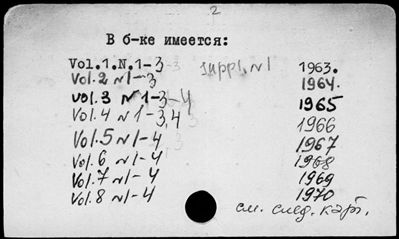 2
В б-ке имеется:
Vol.1.N.1-3 suppl. N1 1963.
Vol.2 N1-3 1964.
Vol.3 N1-3-4 1965
Vol.4 N1-3,4 1966
Vol.5 N1-4 1967
Vol.6 N1-4 1968
Vol.7 N1-4 1969
Vol.8 N1-4 1970
см. след. карт.